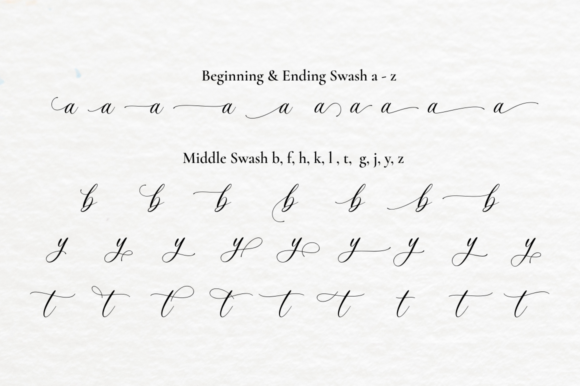 Beginning & Ending Swash a - z
a a a a a a a a a a
Middle Swash b, f, h, k, l , t, g, j, y, z
b b b b b b b
y y y y y y y y y
t t t t t t t t t